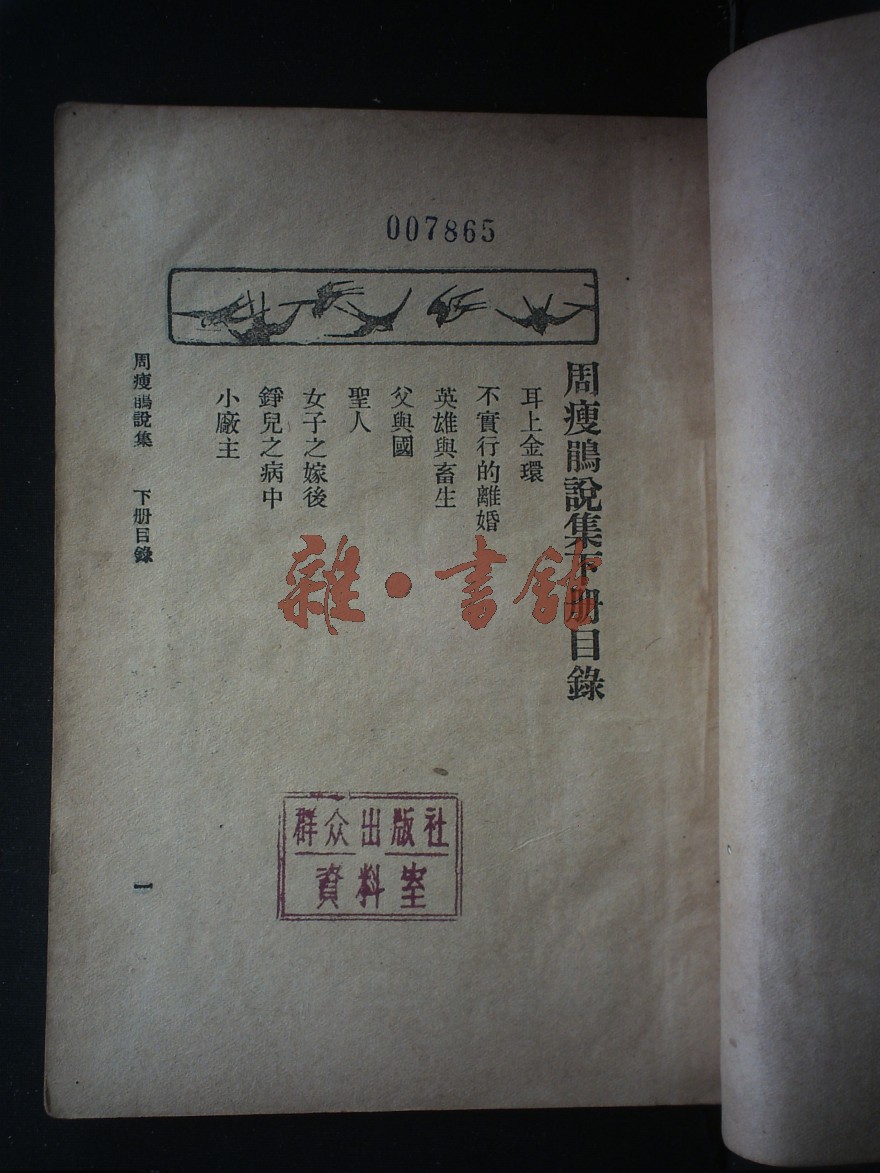 007865
周瘦鵑說集下册目錄
耳上金環
不實行的離婚
英雄與畜生
父與國
聖人
女子之嫁後
錚兒之病中
小廠主
周瘦鵑說集 下册目錄
一
雜·書館
群众出版社
資料室